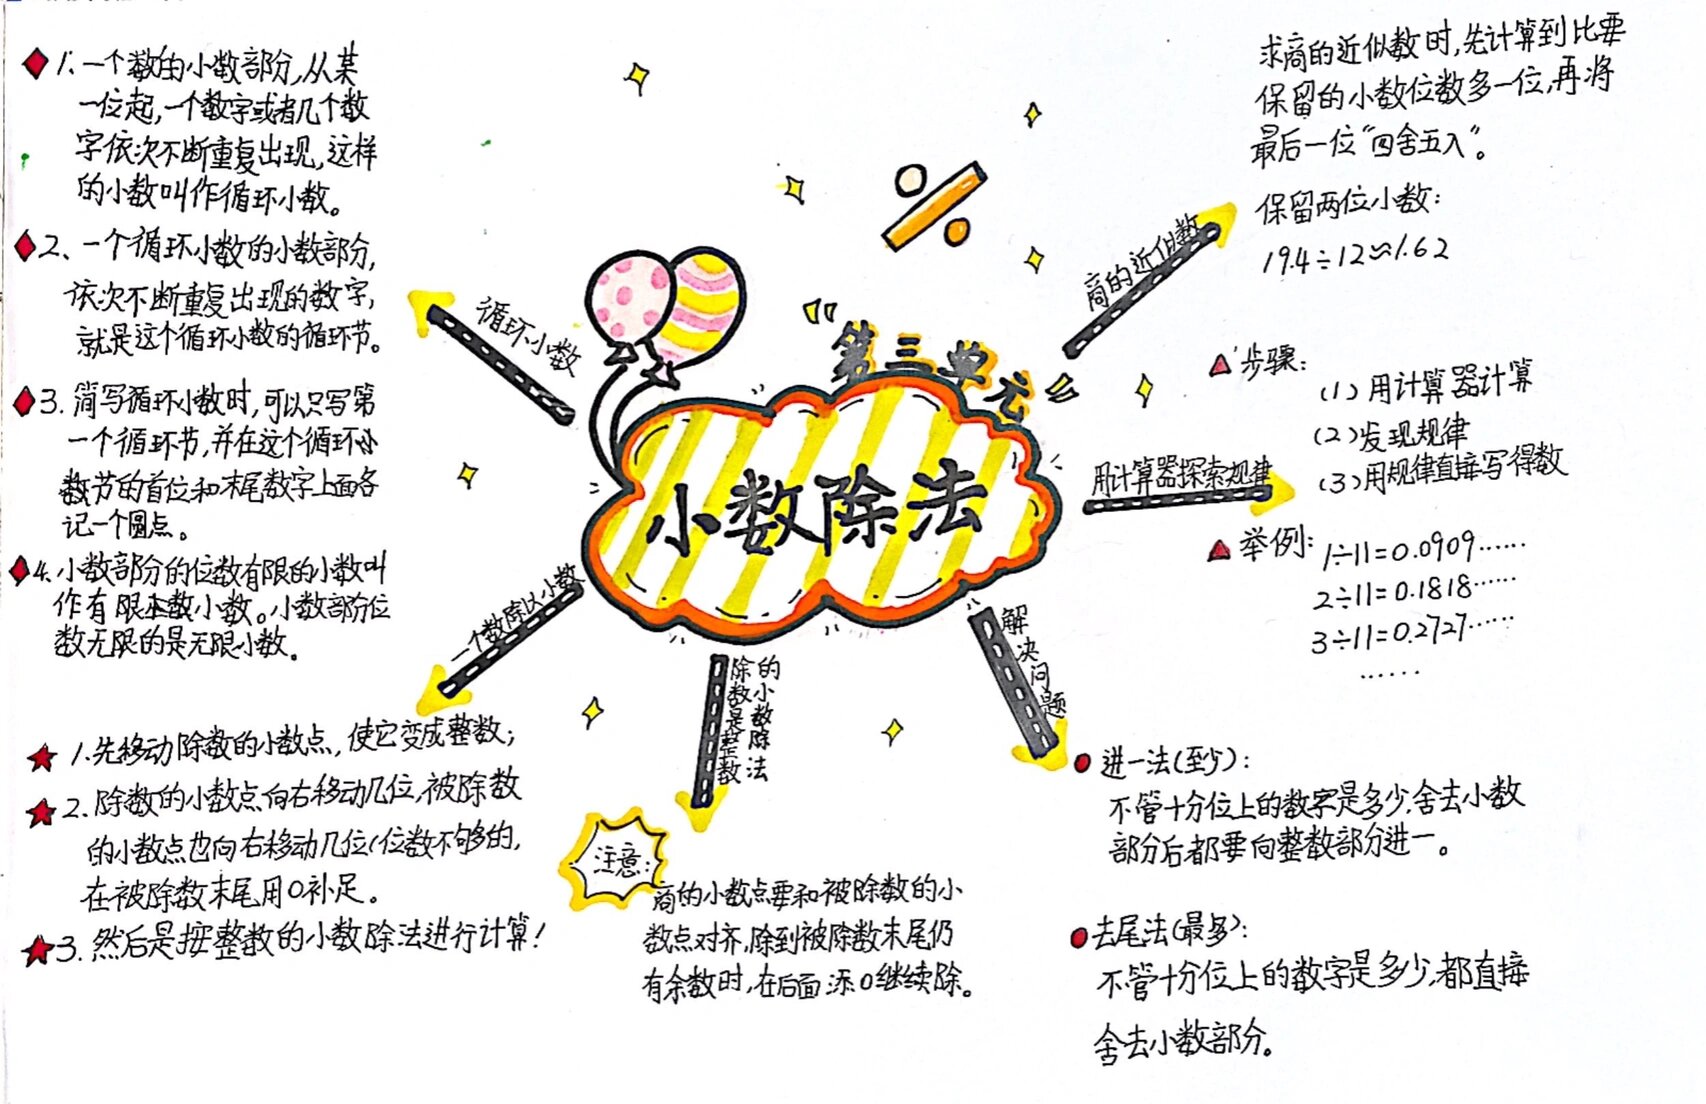 第三单元
小数除法
循环小数
1.一个数的小数部分,从某
一位起,一个数字或者几个数
字依次不断重复出现,这样
的小数叫作循环小数。
2、一个循环小数的小数部分,
依次不断重复出现的数字,
就是这个循环小数的循环节。
3.简写循环小数时,可以只写第
一个循环节,并在这个循环小
数节的首位和末尾数字上面各
记一个圆点。
4.小数部分的位数有限的小数叫
作有限小数。小数部分位
数无限的是无限小数。
一个数除以小数
1.先移动除数的小数点,使它变成整数;
2.除数的小数点向右移动几位,被除数
的小数点也向右移动几位(位数不够的,
在被除数末尾用0补足。
3.然后是按整数的小数除法进行计算!
除数是整数
的小数除法
注意:
商的小数点要和被除数的小
数点对齐,除到被除数末尾仍
有余数时,在后面添0继续除。
商的近似数
求商的近似数时,先计算到比要
保留的小数位数多一位,再将
最后一位“四舍五入”。
保留两位小数:
19.4÷12≈1.62
用计算器探索规律
步骤:
(1)用计算器计算
(2)发现规律
(3)用规律直接写得数
举例:
1÷11=0.0909……
2÷11=0.1818……
3÷11=0.2727……
……
解决问题
进一法(至少):
不管十分位上的数字是多少,舍去小数
部分后都要向整数部分进一。
去尾法(最多):
不管十分位上的数字是多少,都直接
舍去小数部分。